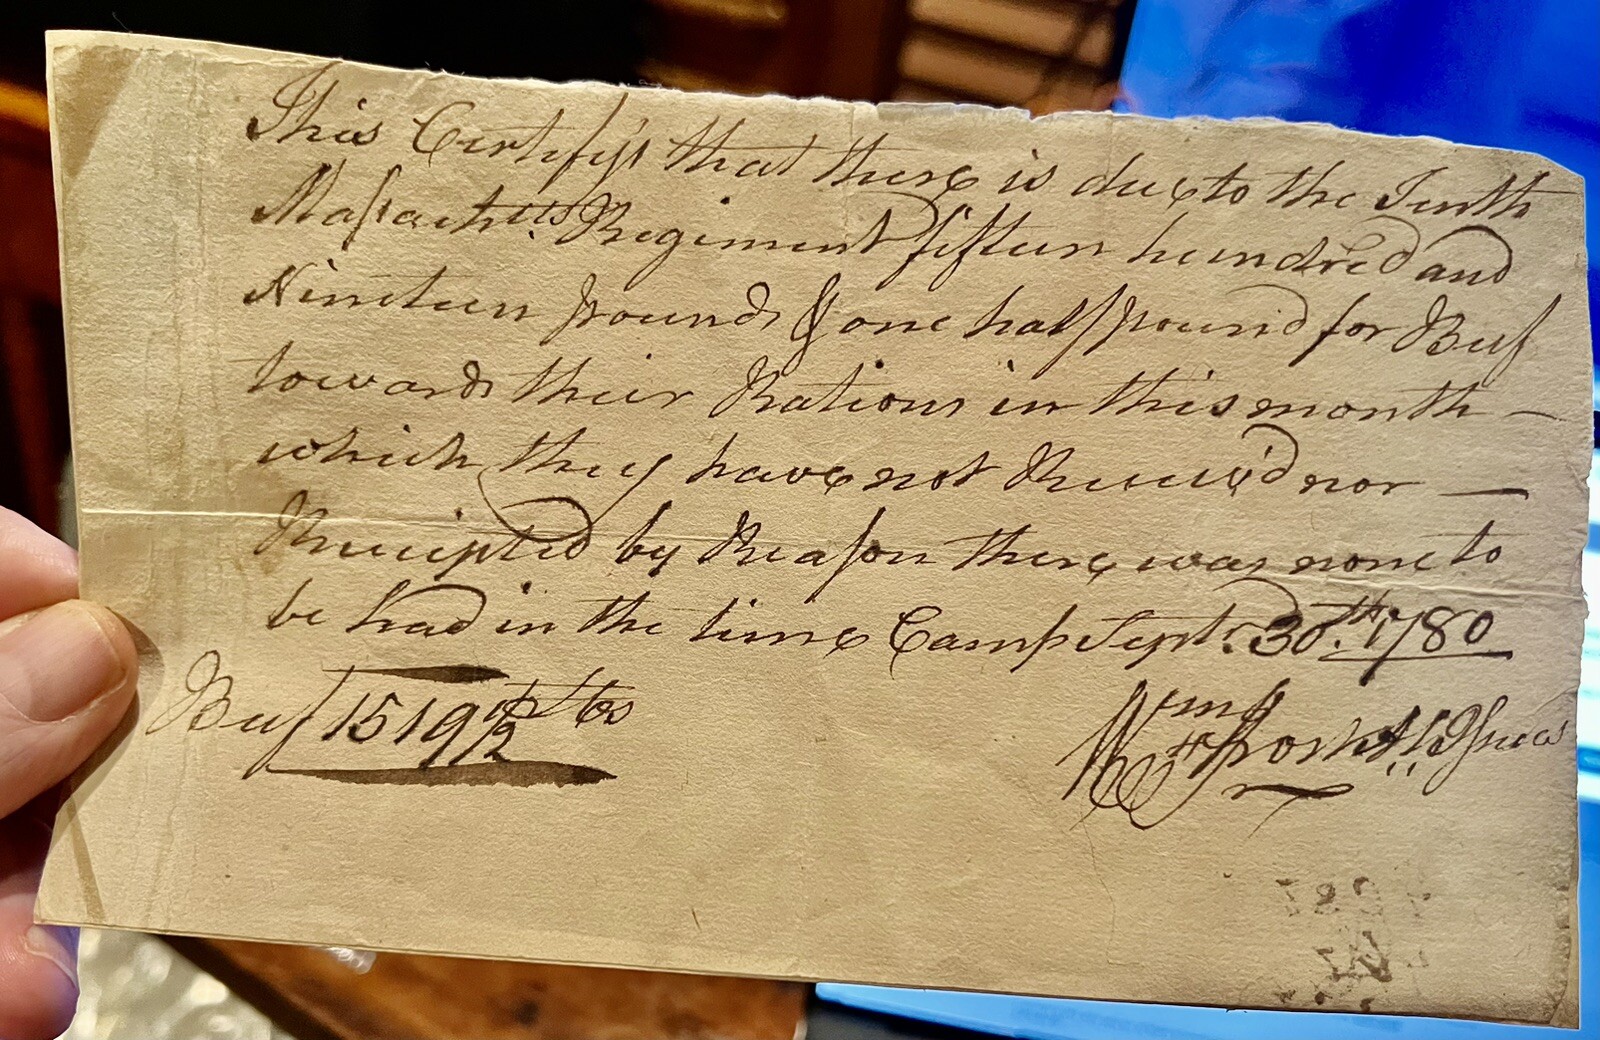 This Certifys that there is due to the Tenth
Massachtts Regiment fifteen hundred and
Nineteen pounds & one half pound for Beef
towards their Rations in this month —
which they have not Receiv'd nor —
Receipted by Reason there was none to
be had in the time Camp Septr. 30th. 1780
Beef 1519 1/2 lbs
Wm